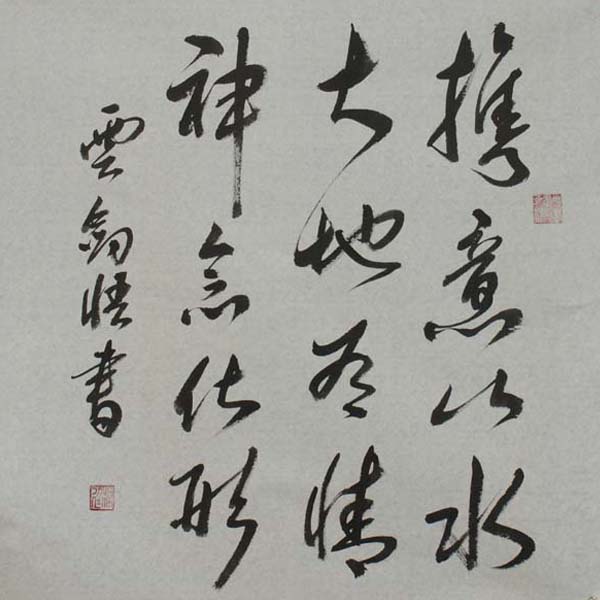 携意山水
大地有情
神念化形
雲劍悟書